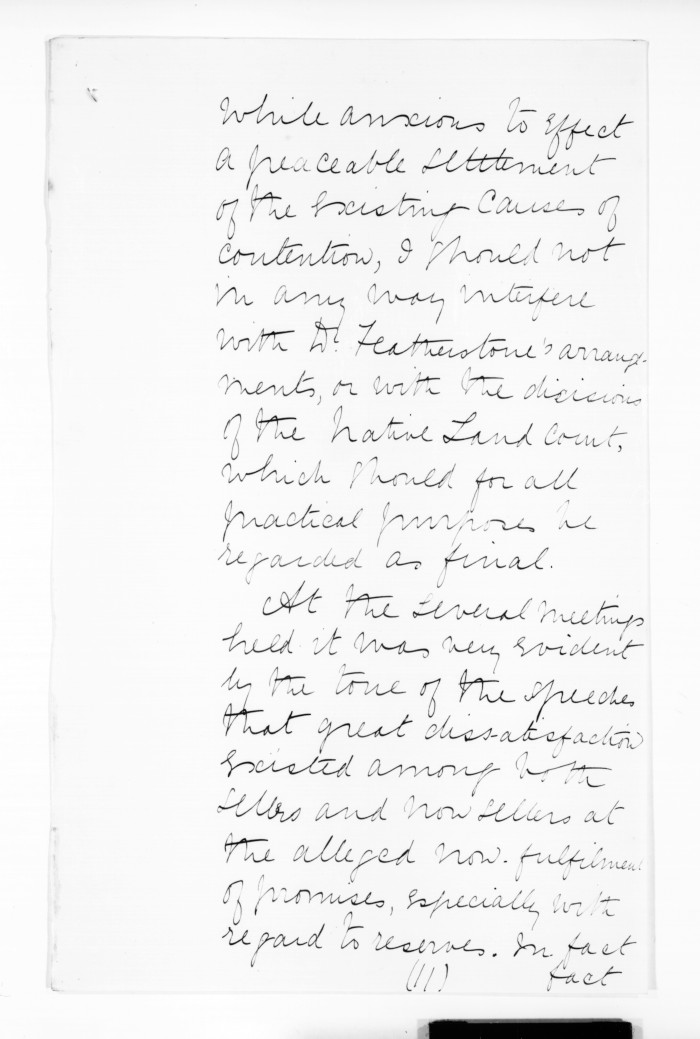 While anxious to effect
a peaceable settlement
of the existing causes of
contention, I should not
in any way interfere
with Dr. Featherstone's arrange-
ments, or with the dicisions
of the Native Land Court,
which should for all
practical purposes be
regarded as final.
At the several meetings
held it was very evident
by the tone of the speeches
that great dissatisfaction
existed among both
sellers and non sellers at
the alleged non-fulfilment
of promises, especially with
regard to reserves. In fact
(11) fact